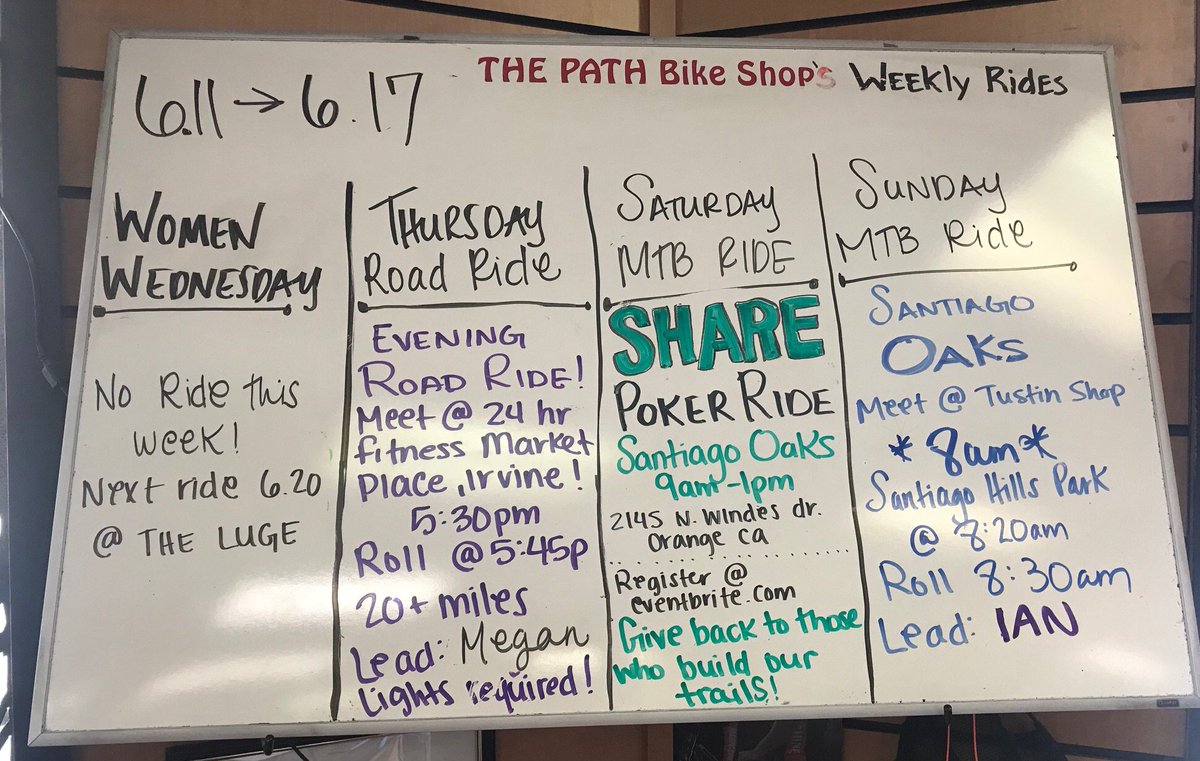 THE PATH Bike Shop's Weekly Rides
6.11 → 6.17
Women
Wednesday
No Ride this
week!
Next ride 6.20
@ THE LUGE
Thursday
Road Ride
Evening
Road Ride!
Meet @ 24 hr
fitness Market
Place, Irvine!
5:30pm
Roll @ 5:45p
20+ miles
Lead: Megan
Lights required!
Saturday
MTB RIDE
SHARE
Poker Ride
Santiago Oaks
9am-1pm
2145 N. Windes dr.
Orange ca
Register @
eventbrite.com
Give back to those
who build our
trails!
Sunday
MTB Ride
Santiago
Oaks
Meet @ Tustin Shop
*8am*
Santiago Hills Park
@ 8:20am
Roll 8:30am
Lead: IAN